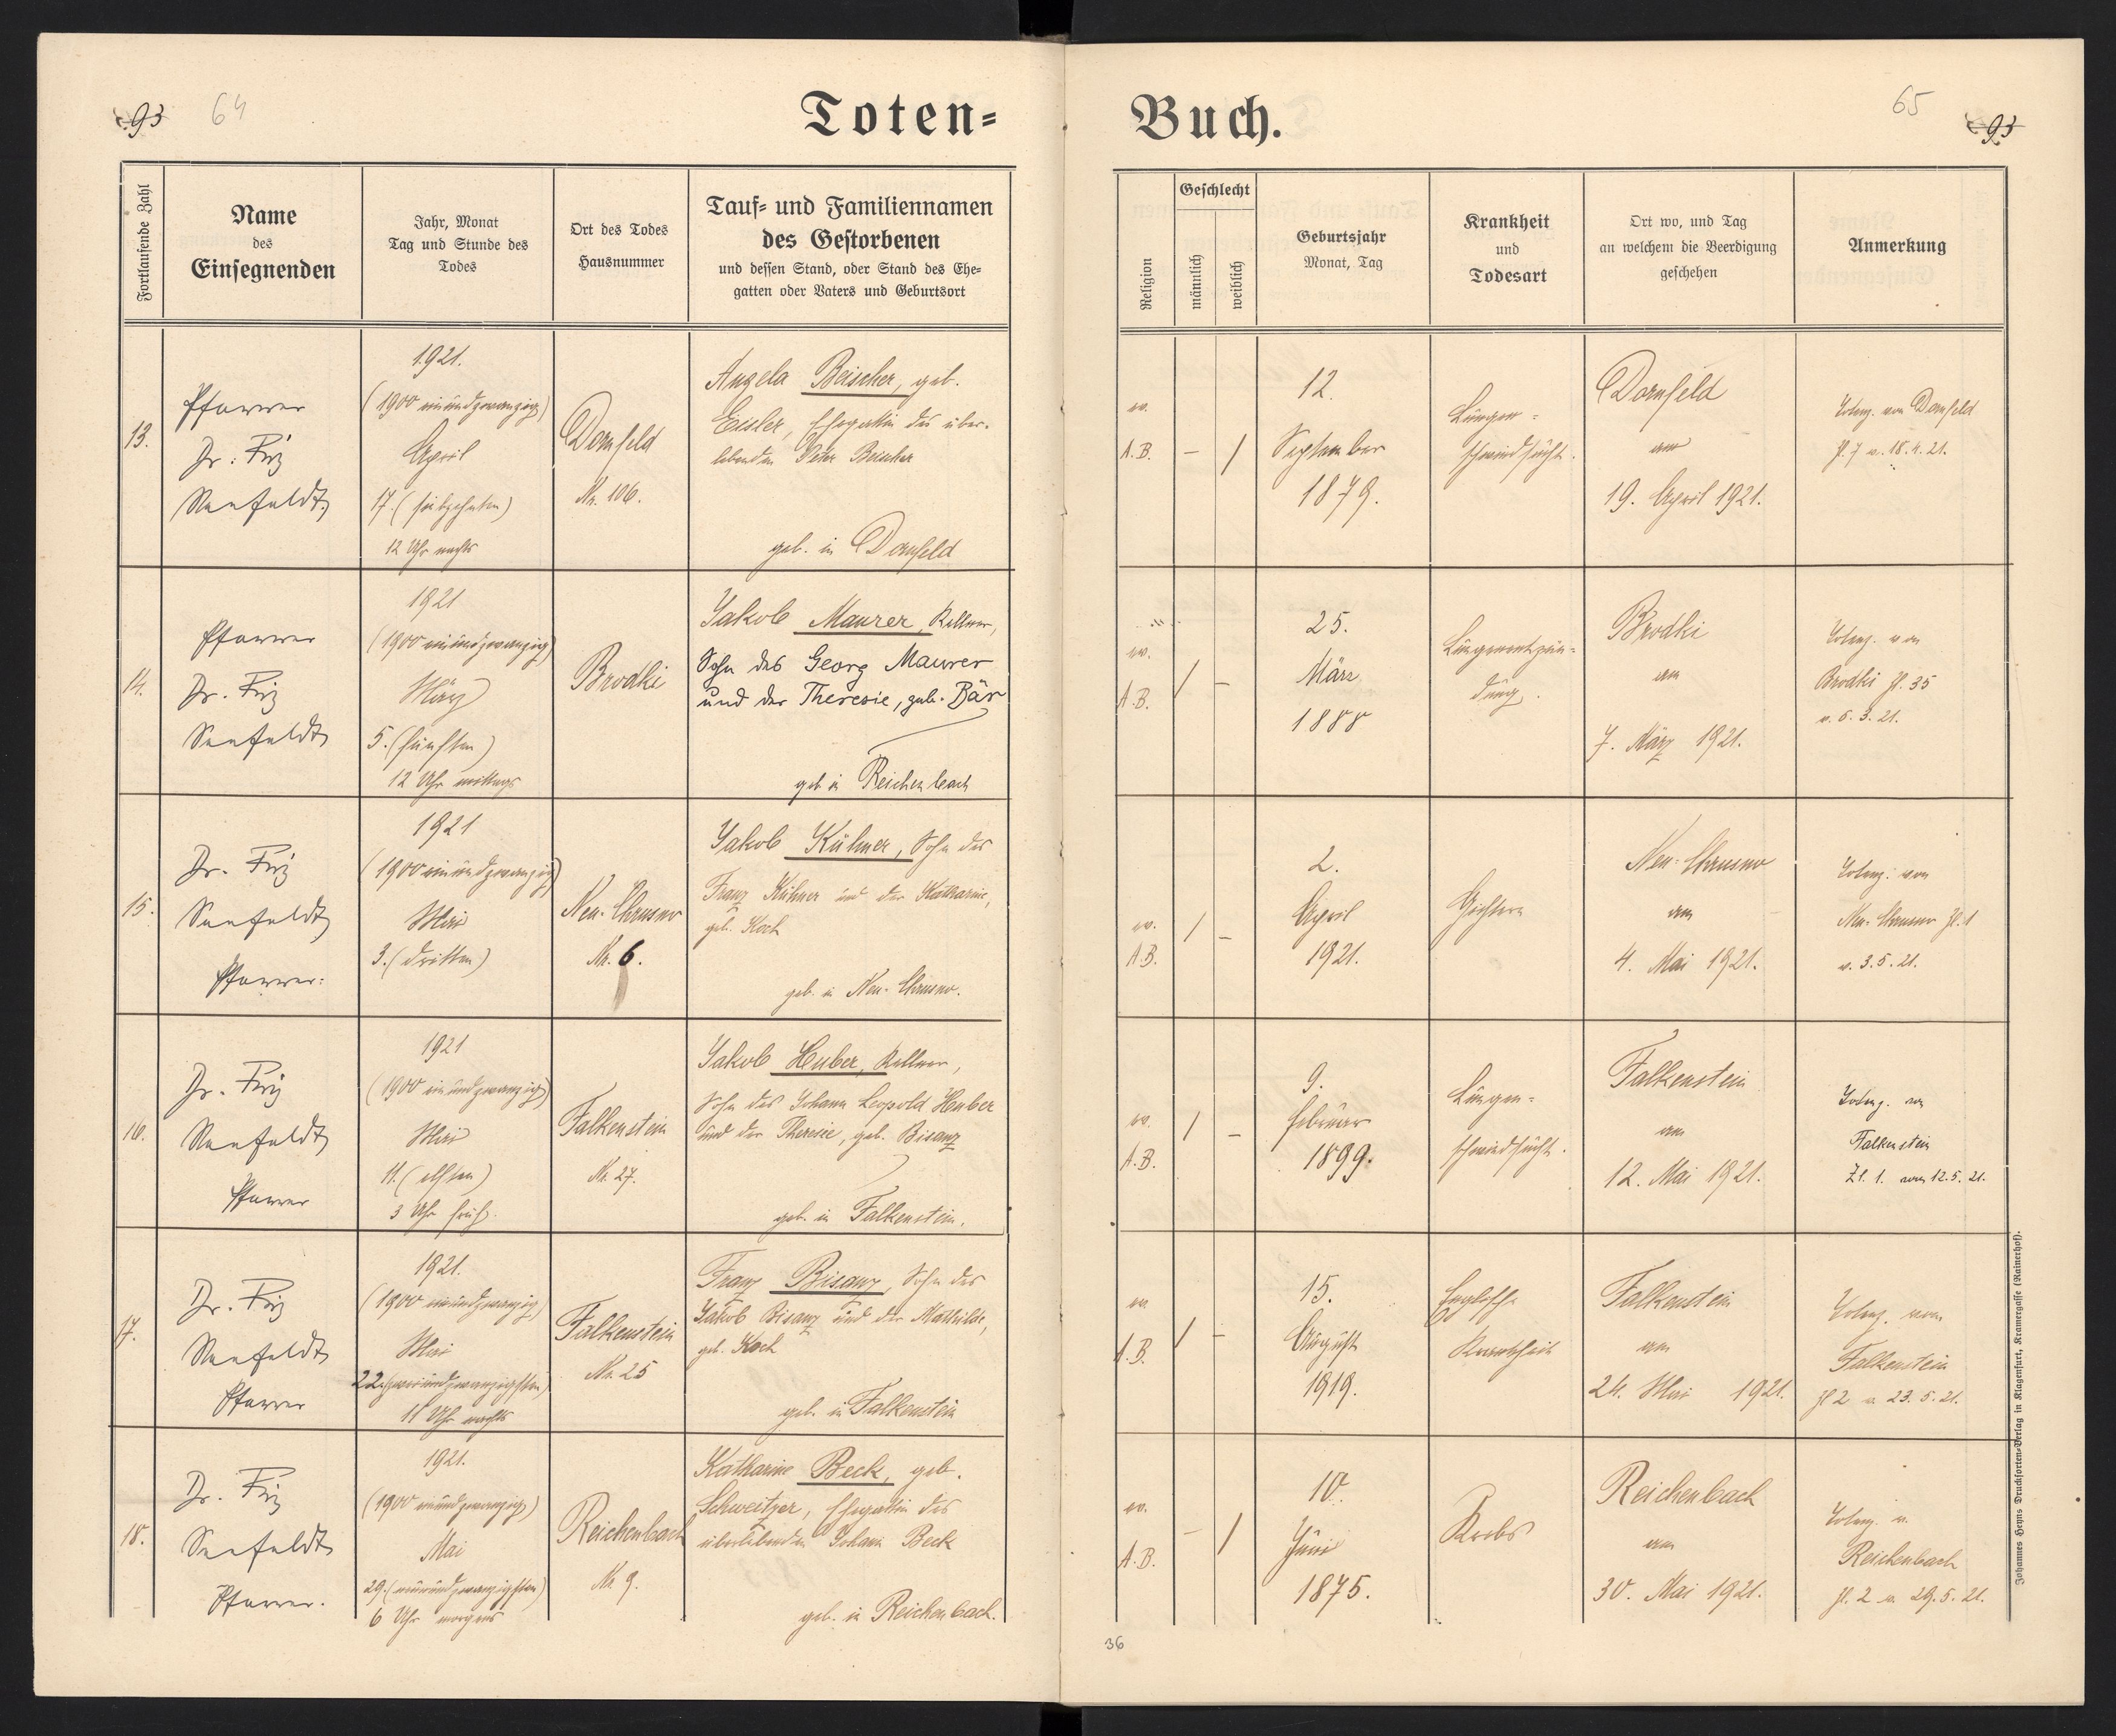 93 64
Toten-
Buch.
65 93
Fortlaufende Zahl
Name
des
Einsegnenden
Jahr, Monat
Tag und Stunde des
Todes
Ort des Todes
Hausnummer
Tauf- und Familiennamen
des Gestorbenen
und dessen Stand, oder Stand des Ehe-
gatten oder Vaters und Geburtsort
Religion
Geschlecht
männlich
weiblich
Geburtsjahr
Monat, Tag
Krankheit
und
Todesart
Ort wo, und Tag
an welchem die Beerdigung
geschehen
Anmerkung
13.
Pfarrer
Dr. Friz
Seefeldt
1921.
(1900 einundzwanzig)
April
17. (siebzehnten)
12 Uhr nachts
Dornfeld
Nr. 106.
Angela Beischer, geb.
Eisler, Ehegattin des über-
lebenden Peter Beischer
geb. in Dornfeld
ev.
A.B.
– /
12.
September
1879.
Lungen-
schwindsucht.
Dornfeld
am
19. April 1921.
von Dornfeld
Zl. 7 v. 18.4.21.
14.
Pfarrer
Dr. Friz
Seefeldt
1921
(1900 einundzwanzig)
März
5. (fünften)
12 Uhr mittags
Brodki
Jakob Maurer,
Sohn des Georg Maurer
und der Theresie, geb. Bär
geb in Reichenbach
ev.
A.B.
/ –
25.
März
1888
Lungenentzün-
dung.
Brodki
am
7. März 1921.
von
Brodki Zl. 35
v. 6.3.21.
15.
Dr. Friz
Seefeldt
Pfarrer.
1921
(1900 einundzwanzig)
Mai
3. (dritten)
Neu-Chrusno
Nr. 6.
Jakob Kühner, Sohn des
Franz Kühner und der Katharine,
geb. Koch
geb. in Neu-Chrusno.
ev.
A.B.
/ –
2.
April
1921.
Gichtern
Neu-Chrusno
am
4. Mai 1921.
von
Neu-Chrusno Zl. 1
v. 3.5.21.
16.
Dr. Friz
Seefeldt
Pfarrer
1921
(1900 einundzwanzig)
Mai
11. (elften)
3 Uhr früh.
Falkenstein
Nr. 27.
Jakob Huber,
Sohn des Johann Leopold Huber
und der Theresie, geb. Bisanz
geb. in Falkenstein.
ev.
A.B.
/ –
9.
Februar
1899.
Lungen-
schwindsucht.
Falkenstein
am
12. Mai 1921.
von
Falkenstein
Zl. 1. vom 12.5.21.
17.
Dr. Friz
Seefeldt
Pfarrer
1921.
(1900 einundzwanzig)
Mai
22. (zweiundzwanzigsten)
11 Uhr nachts
Falkenstein
Nr. 25
Franz Bisanz, Sohn des
Jakob Bisanz und der Mathilde,
geb. Koch
geb. in Falkenstein
ev.
A.B.
/ –
15.
August
1919.
Englische
Krankheit
Falkenstein
am
24. Mai 1921.
von
Falkenstein
Zl 2 v. 23.5.21.
18.
Dr. Friz
Seefeldt
Pfarrer.
1921.
(1900 einundzwanzig)
Mai
29. (neunundzwanzigsten)
6 Uhr morgens
Reichenbach
Nr. 9.
Katharine Beck, geb.
Schweitzer, Ehegattin des
überlebenden Johann Beck
geb. in Reichenbach.
ev.
A.B.
– /
10.
Juni
1875.
Krebs
Reichenbach
am
30. Mai 1921.
v.
Reichenbach
Zl. 2 v. 29.5.21.
36
Johannes Heyns Drucksorten-Verlag in Klagenfurt, Kramergasse (Rainerhof).